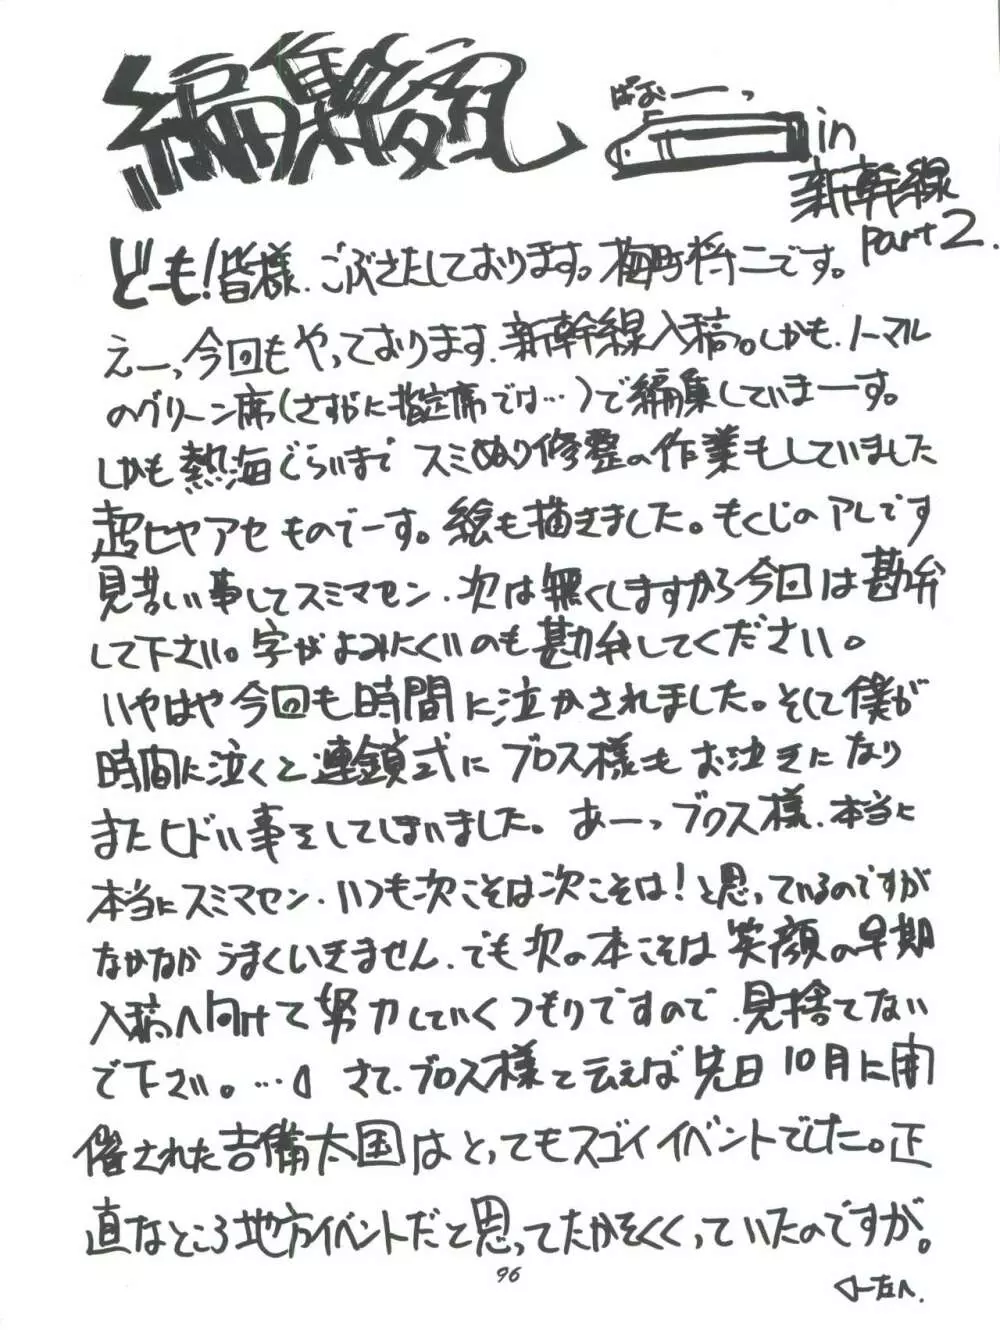 編集後記
ぱおーーっ
in
新幹線
part 2.
どーも!皆様、ごぶさたしております。梅町将二です。
えーっ今回もやっております、新幹線入稿。しかも、ノーマル
のグリーン席(さすがに指定席では…)で編集していまーす。
しかも熱海ぐらいまでスミぬり修整の作業もしていました
超ヒヤアセものでーす。絵も描きました。もくじのアレです
見苦しい事してスミマセン、次は無くしますから今回は勘弁
して下さい。字がよみにくいのも勘弁してください。
いやはや今回も時間に泣かされました。そして僕が
時間に泣くと連鎖式にブロス様もお泣きになり
またヒドい事をしてしまいました。あーっブロス様、本当に
本当にスミマセン、いつも次こそは次こそは!と思っているのですが
なかなかうまくいきません、でも次の本こそは笑顔の早期
入稿へ向けて努力していくつもりですので、見捨てない
で下さい。… さて、ブロス様と云えば先日10月に開
催された吉備太国はとってもスゴイイベントでした。正
直なところ地方イベントだと思ってたかをくくっていたのですが。
96
左へ.